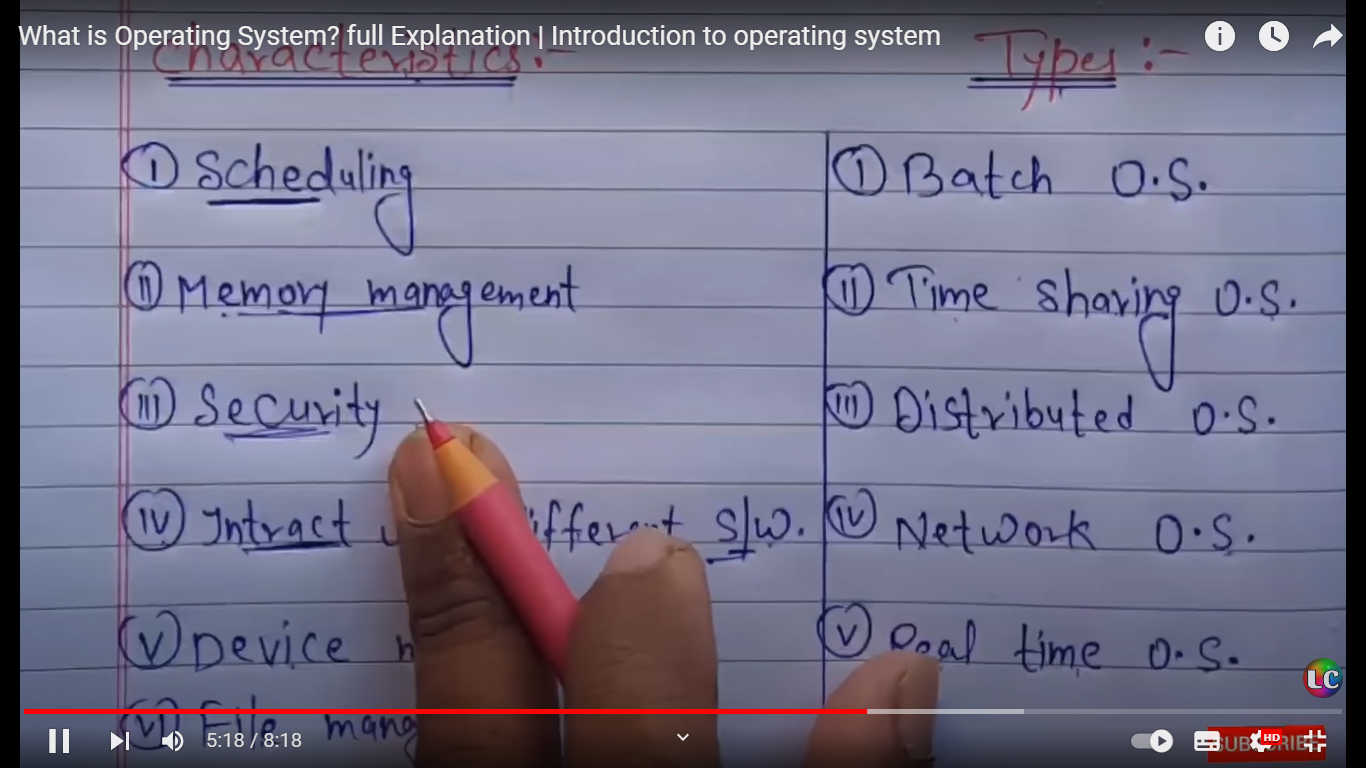 What is Operating System? full Explanation | Introduction to operating system
Characteristics:-
I Scheduling
II Memory management
III Security
IV Intract different S/W.
V Device
VI File
Types:-
I Batch O.S.
II Time sharing O.S.
III Distributed O.S.
IV Network O.S.
V Real time O.S.
LC
5:18 / 8:18
HD
SUBSCRIBE